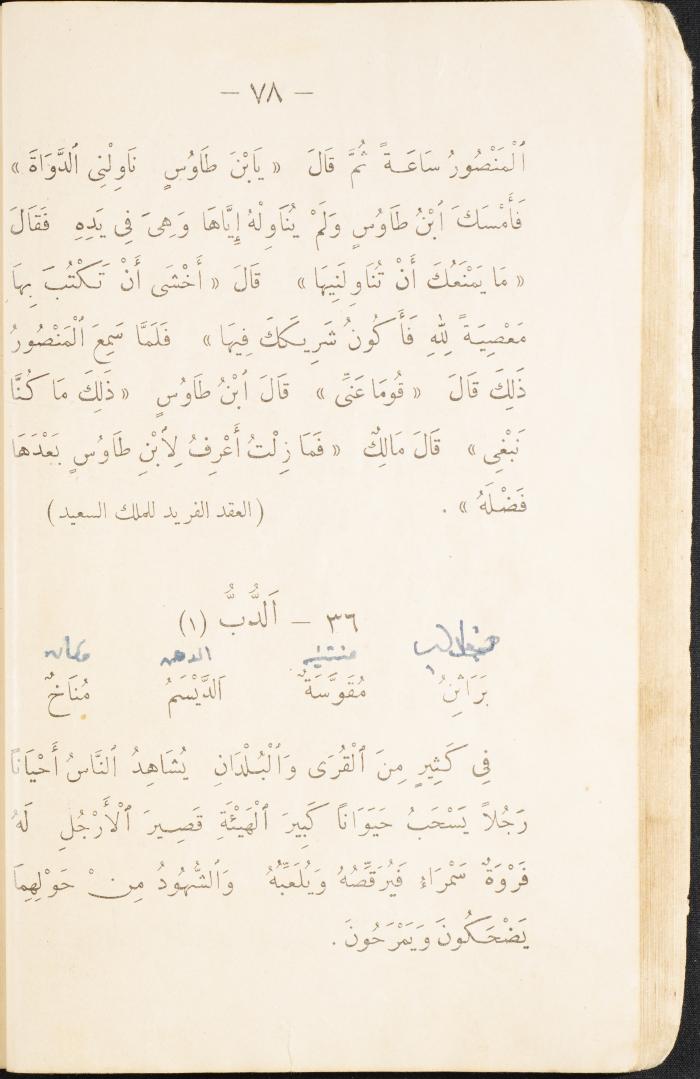 — ٧٨ —
ٱلْمَنْصُورُ سَاعَةً ثُمَّ قَالَ « يَابْنَ طَاوُسٍ نَاوِلْنِى ٱلدَّوَاةَ »
فَأَمْسَكَ ٱبْنُ طَاوُسٍ وَلَمْ يُنَاوِلْهُ إِيَّاهَا وَهِىَ فِى يَدِهِ فَقَالَ
« مَا يَمْنَعُكَ أَنْ تُنَاوِلَنِيهَا » قَالَ « أَخْشَى أَنْ تَكْتُبَ بِهَا
مَعْصِيَةً لِلّٰهِ فَأَكُونُ شَرِيكَكَ فِيهَا » فَلَمَّا سَمِعَ ٱلْمَنْصُورُ
ذَلِكَ قَالَ « قُومَا عَنِّى » قَالَ ٱبْنُ طَاوُسٍ « ذَلِكَ مَا كُنَّا
نَبْغِى » قَالَ مَالِكٌ « فَمَا زِلْتُ أَعْرِفُ لِٱبْنِ طَاوُسٍ بَعْدَهَا
فَضْلَهُ » . (العقد الفريد للملك السعيد)
٣٦ – اَلدُّبُّ (١)
منتنيه الدهن مكان
بَرَاثِنُ مُقَوَّسَةٌ اَلدَّيْسَمُ مُنَاخٌ
فِى كَثِيرٍ مِنَ ٱلْقُرَى وَٱلْبُلْدَانِ يُشَاهِدُ ٱلنَّاسُ أَحْيَانًا
رَجُلاً يَسْحَبُ حَيَوَانًا كَبِيرَ ٱلْهَيْئَةِ قَصِيرَ ٱلْأَرْجُلِ لَهُ
فَرْوَةٌ سَمْرَاءُ فَيُرَقِّصُهُ وَيُلَعِّبُهُ وَٱلشُّهُودُ مِنْ حَوْلِهِمَا
يَضْحَكُونَ وَيَمْرَحُونَ .